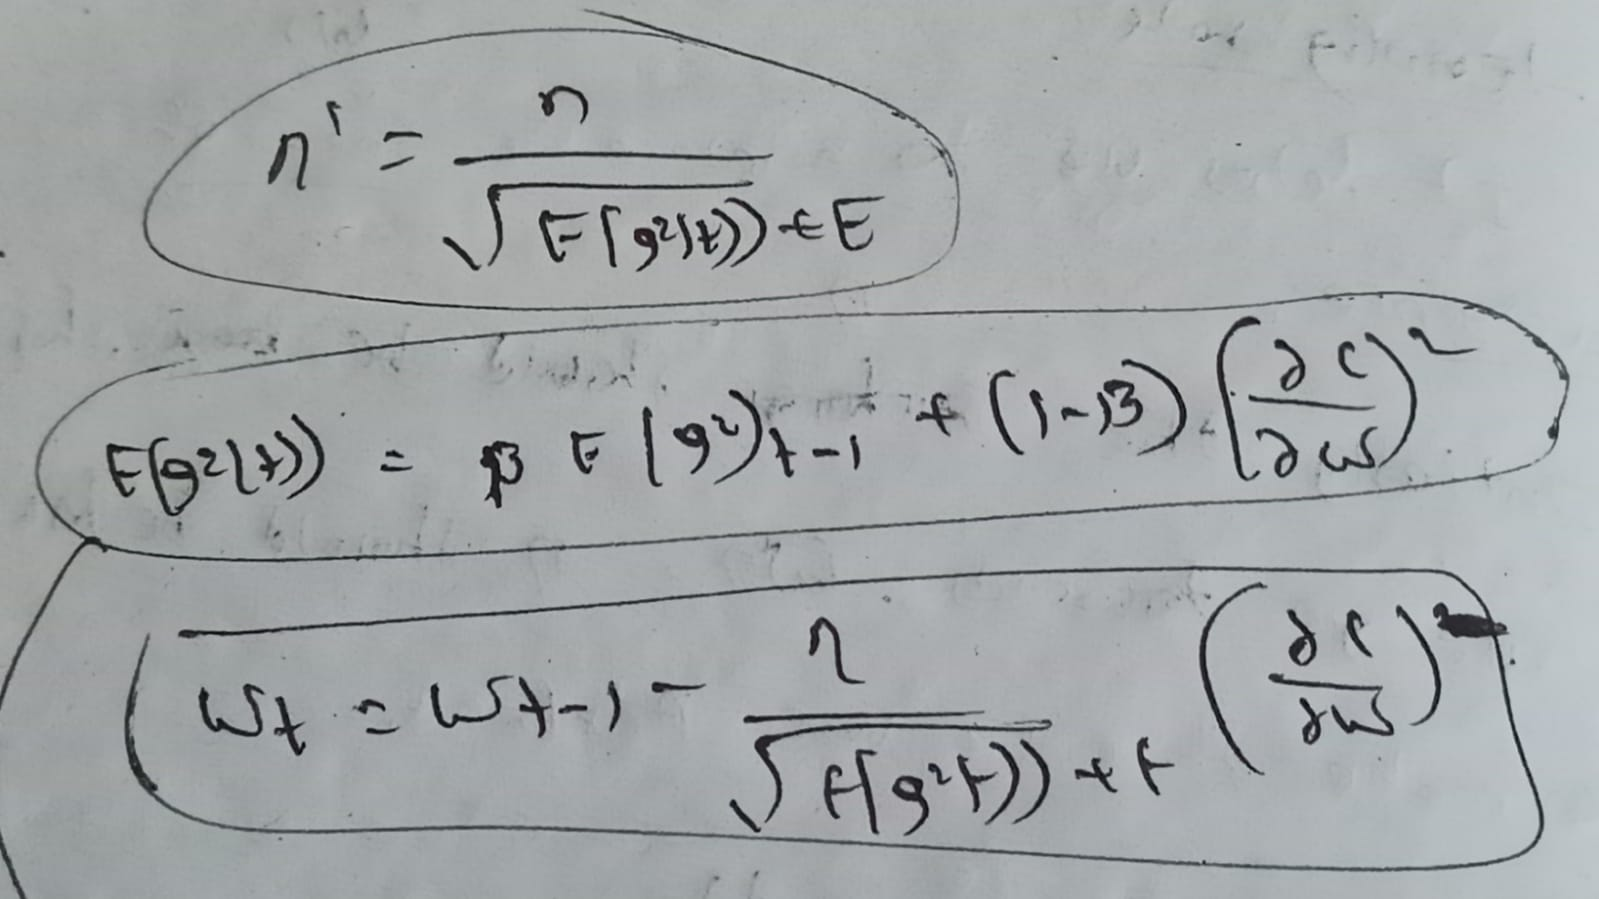 η' = η / √E(g²(t)) + E
E(g²(t)) = β E(g²)t-1 + (1-β) (∂C/∂w)²
Wt = Wt-1 - η / √E(g²t)) + E (∂C/∂w)